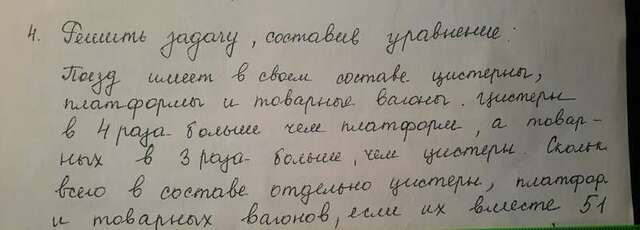 4. Решить задачу, составив уравнение:
Поезд имеет в своем составе цистерны,
платформы и товарные вагоны. Цистерн
в 4 раза больше чем платформ, а товар-
ных в 3 раза больше, чем цистерн. Скольк
всего в составе отдельно цистерн, платфор
и товарных вагонов, если их вместе 51